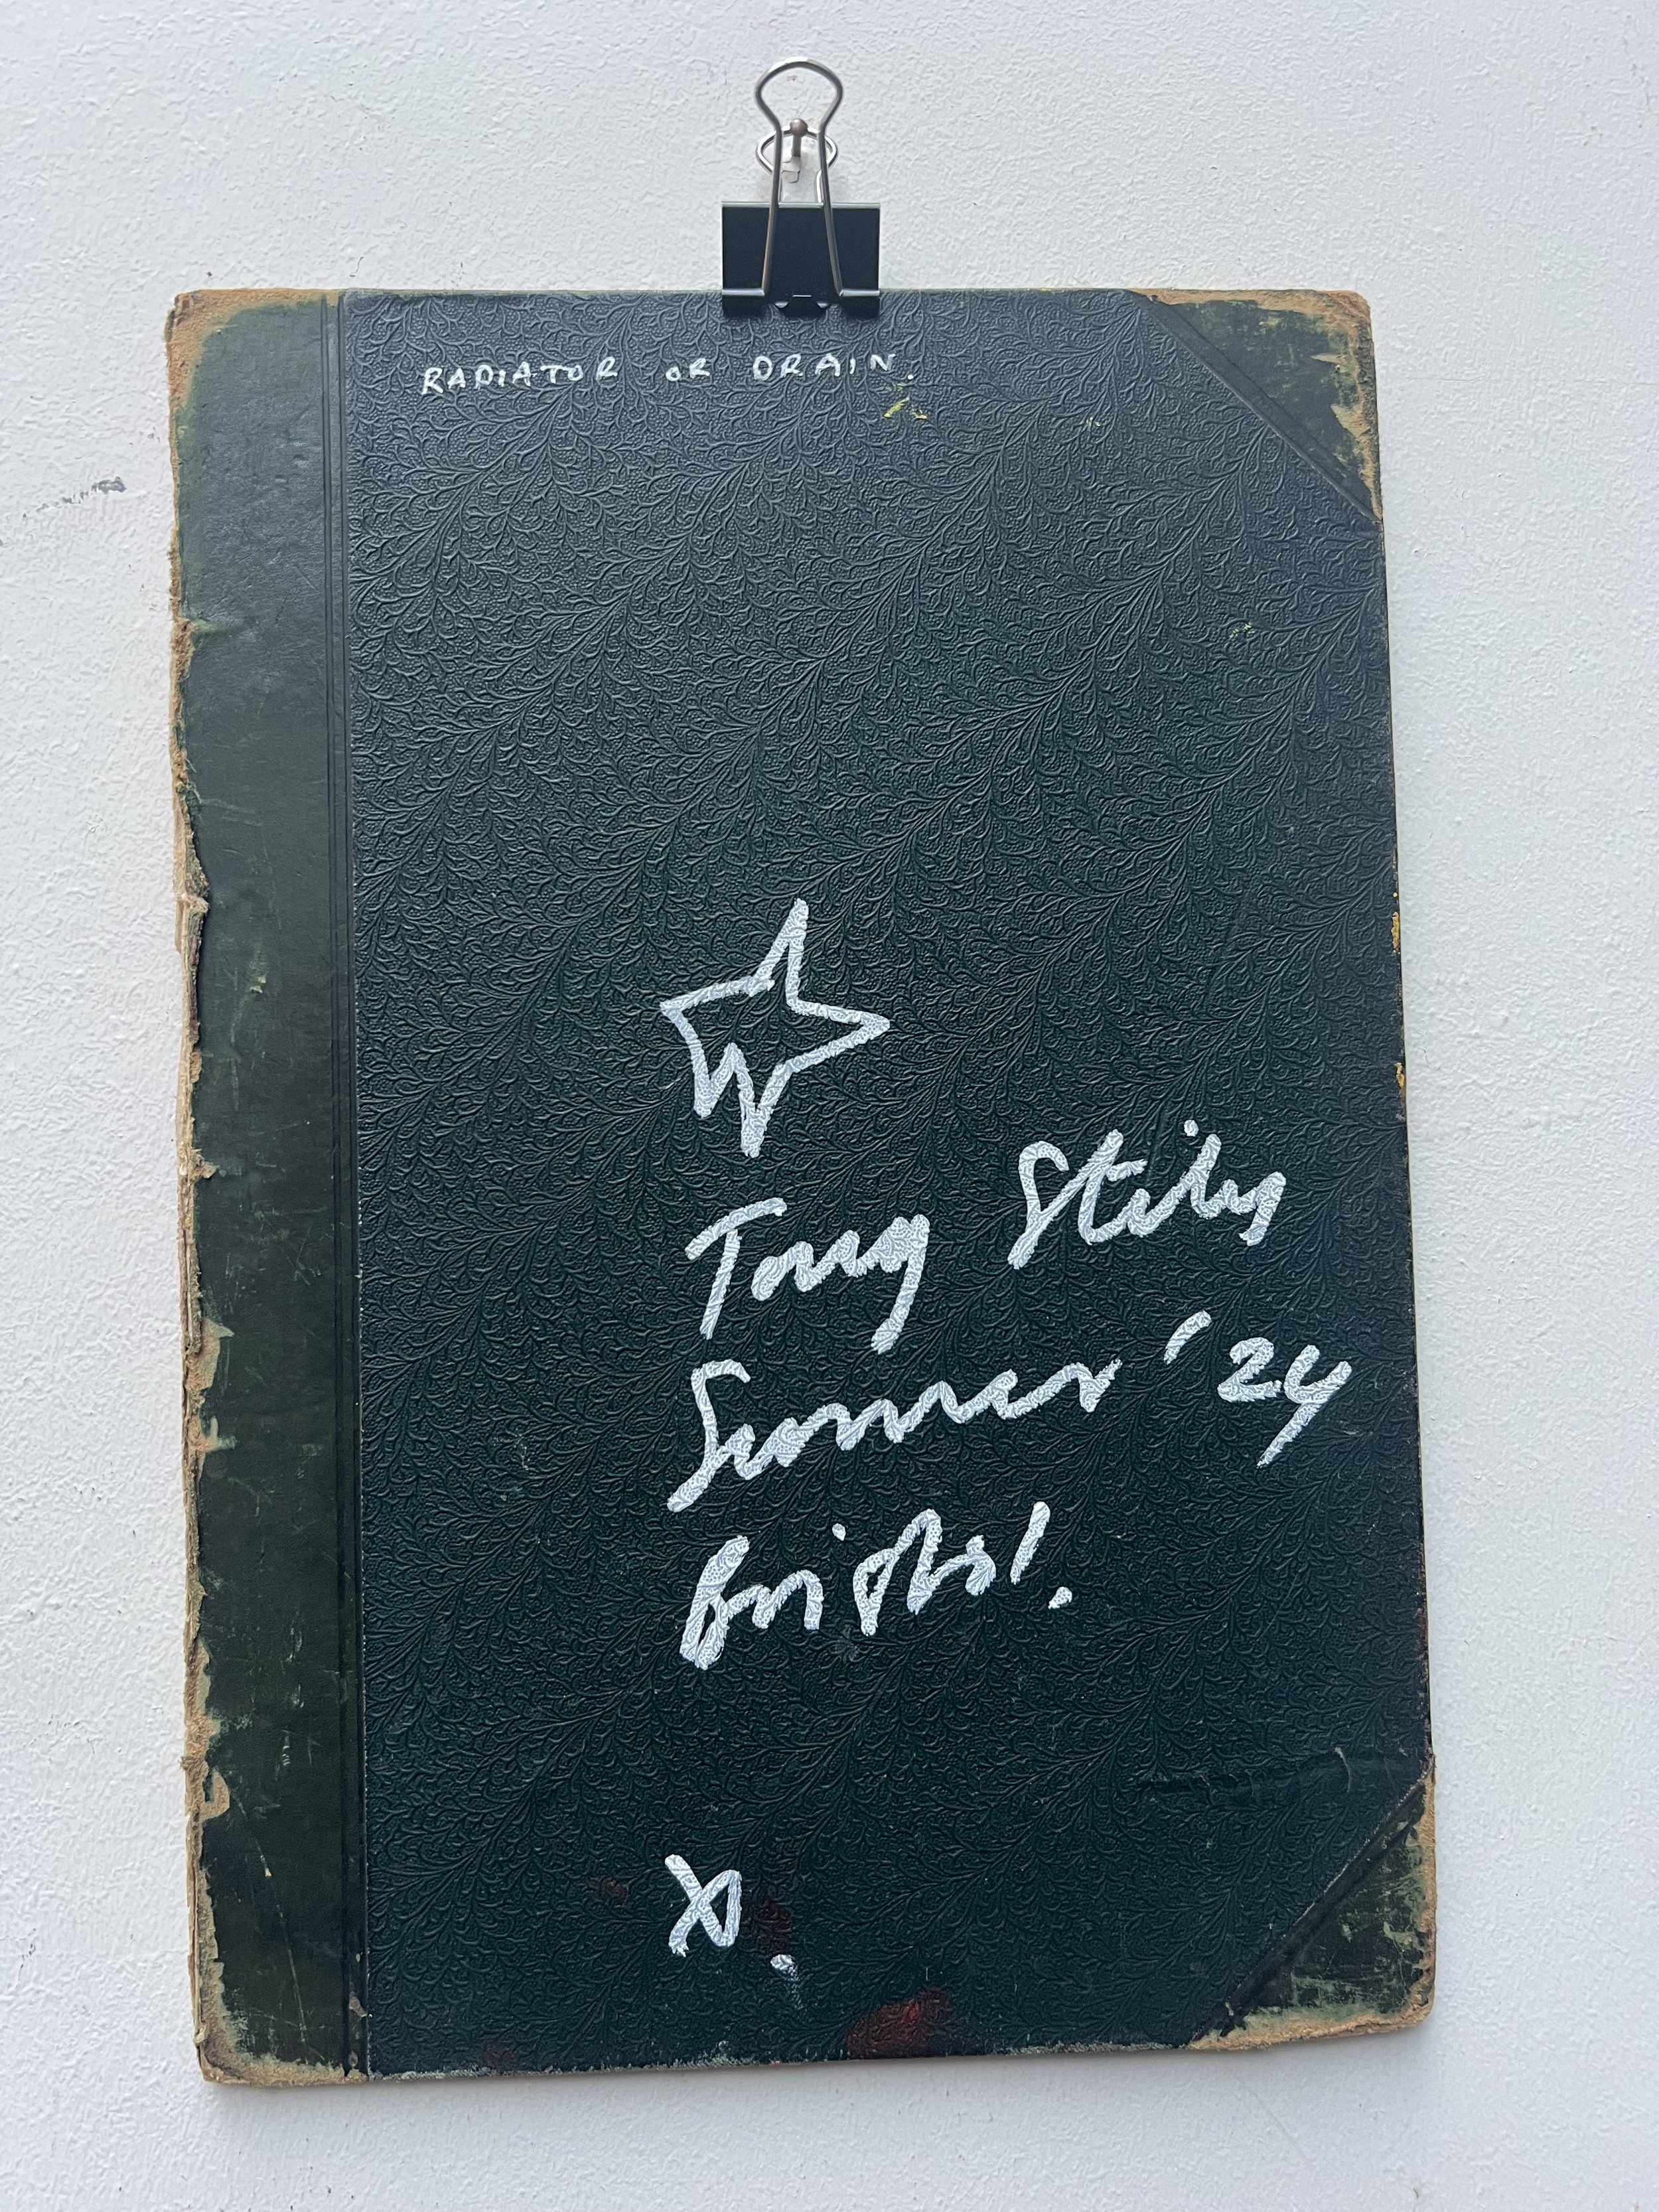 RADIATOR OR DRAIN.
Tony Stiles
Summer '24
Bristol.
X.